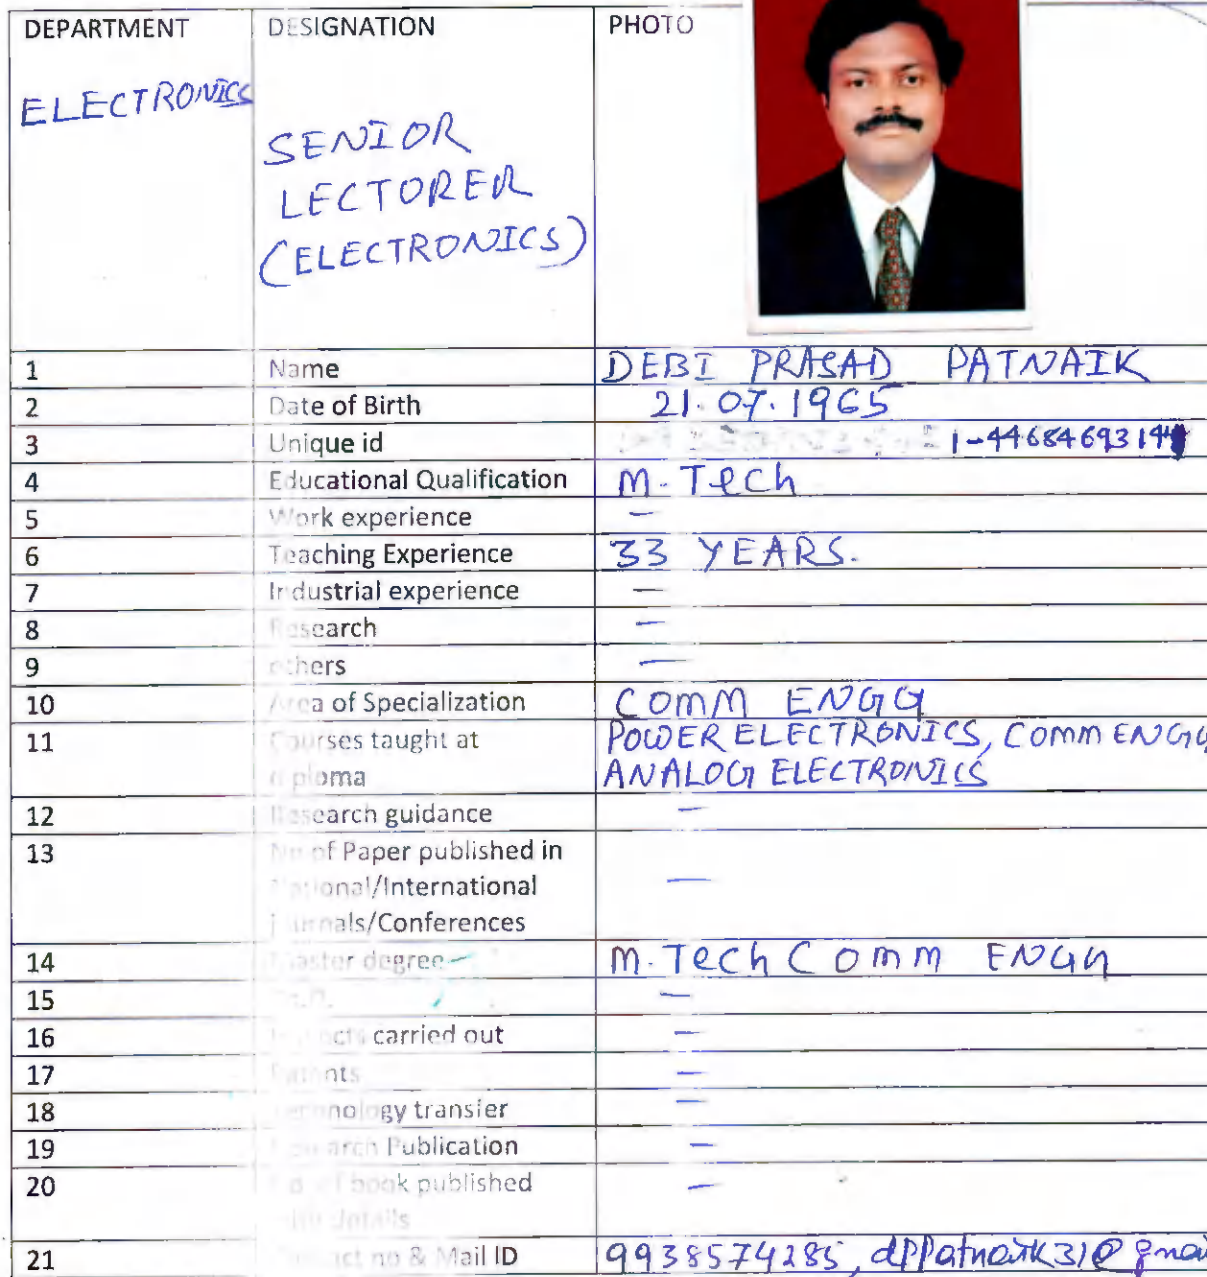 DEPARTMENT DESIGNATION PHOTO
ELECTRONICS
SENIOR
LECTORER
(ELECTRONICS)
1 Name DEBI PRASAD PATNAIK
2 Date of Birth 21.07.1965
3 Unique id 1-4468469314
4 Educational Qualification M.Tech
5 Work experience –
6 Teaching Experience 33 YEARS.
7 Industrial experience –
8 Research –
9 others –
10 Area of Specialization COMM ENGG
11 Courses taught at POWER ELECTRONICS, COMM ENGG
diploma ANALOG ELECTRONICS
12 Research guidance –
13 No of Paper published in
National/International –
journals/Conferences
14 Master degree M.Tech COMM ENGG
15 Ph.D. –
16 Projects carried out –
17 Patents –
18 Technology transfer –
19 Research Publication –
20 No of book published –
details
21 Contact no & Mail ID 9938574285, dppatnaik31@gmai